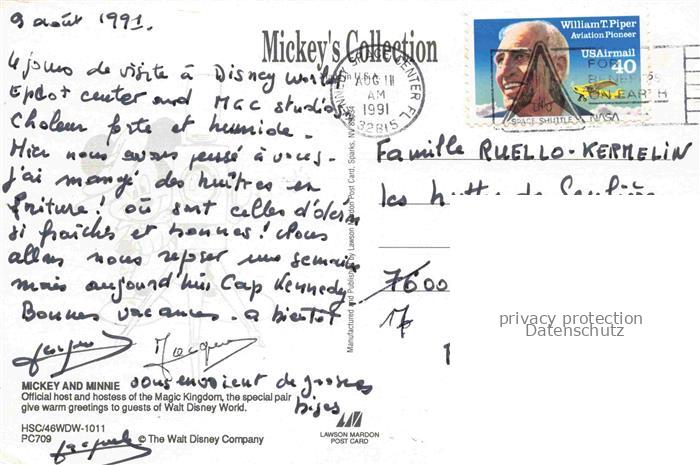 9 août 1991.
Mickey's Collection
William T. Piper
Aviation Pioneer
USAirmail
40
CENTER FL
AUG 11
AM
1991
32815
FOR
ON EARTH
SPACE SHUTTLE NASA
4 jours de visite à Disney World
Epcot center and MGC studios
Chaleur forte et humide.
Hier nous avons pensé à vous.
j'ai mangé des huîtres en
friture! où sont celles d'
si fraîches et bonnes! Nous
allons nous reposer une semaine
mais aujourd'hui Cap Kennedy
Bonnes vacances. a bientôt
Jacques
vous envoient de grosses
bises
Famille RUELLO-KERMELIN
Les
7600
17
Manufactured and Published by Lawson Mardon Post Card, Sparks, NV 89434
privacy protection
Datenschutz
MICKEY AND MINNIE
Official host and hostess of the Magic Kingdom, the special pair
give warm greetings to guests of Walt Disney World.
HSC/46WDW-1011
PC709 © The Walt Disney Company
LAWSON MARDON
POST CARD